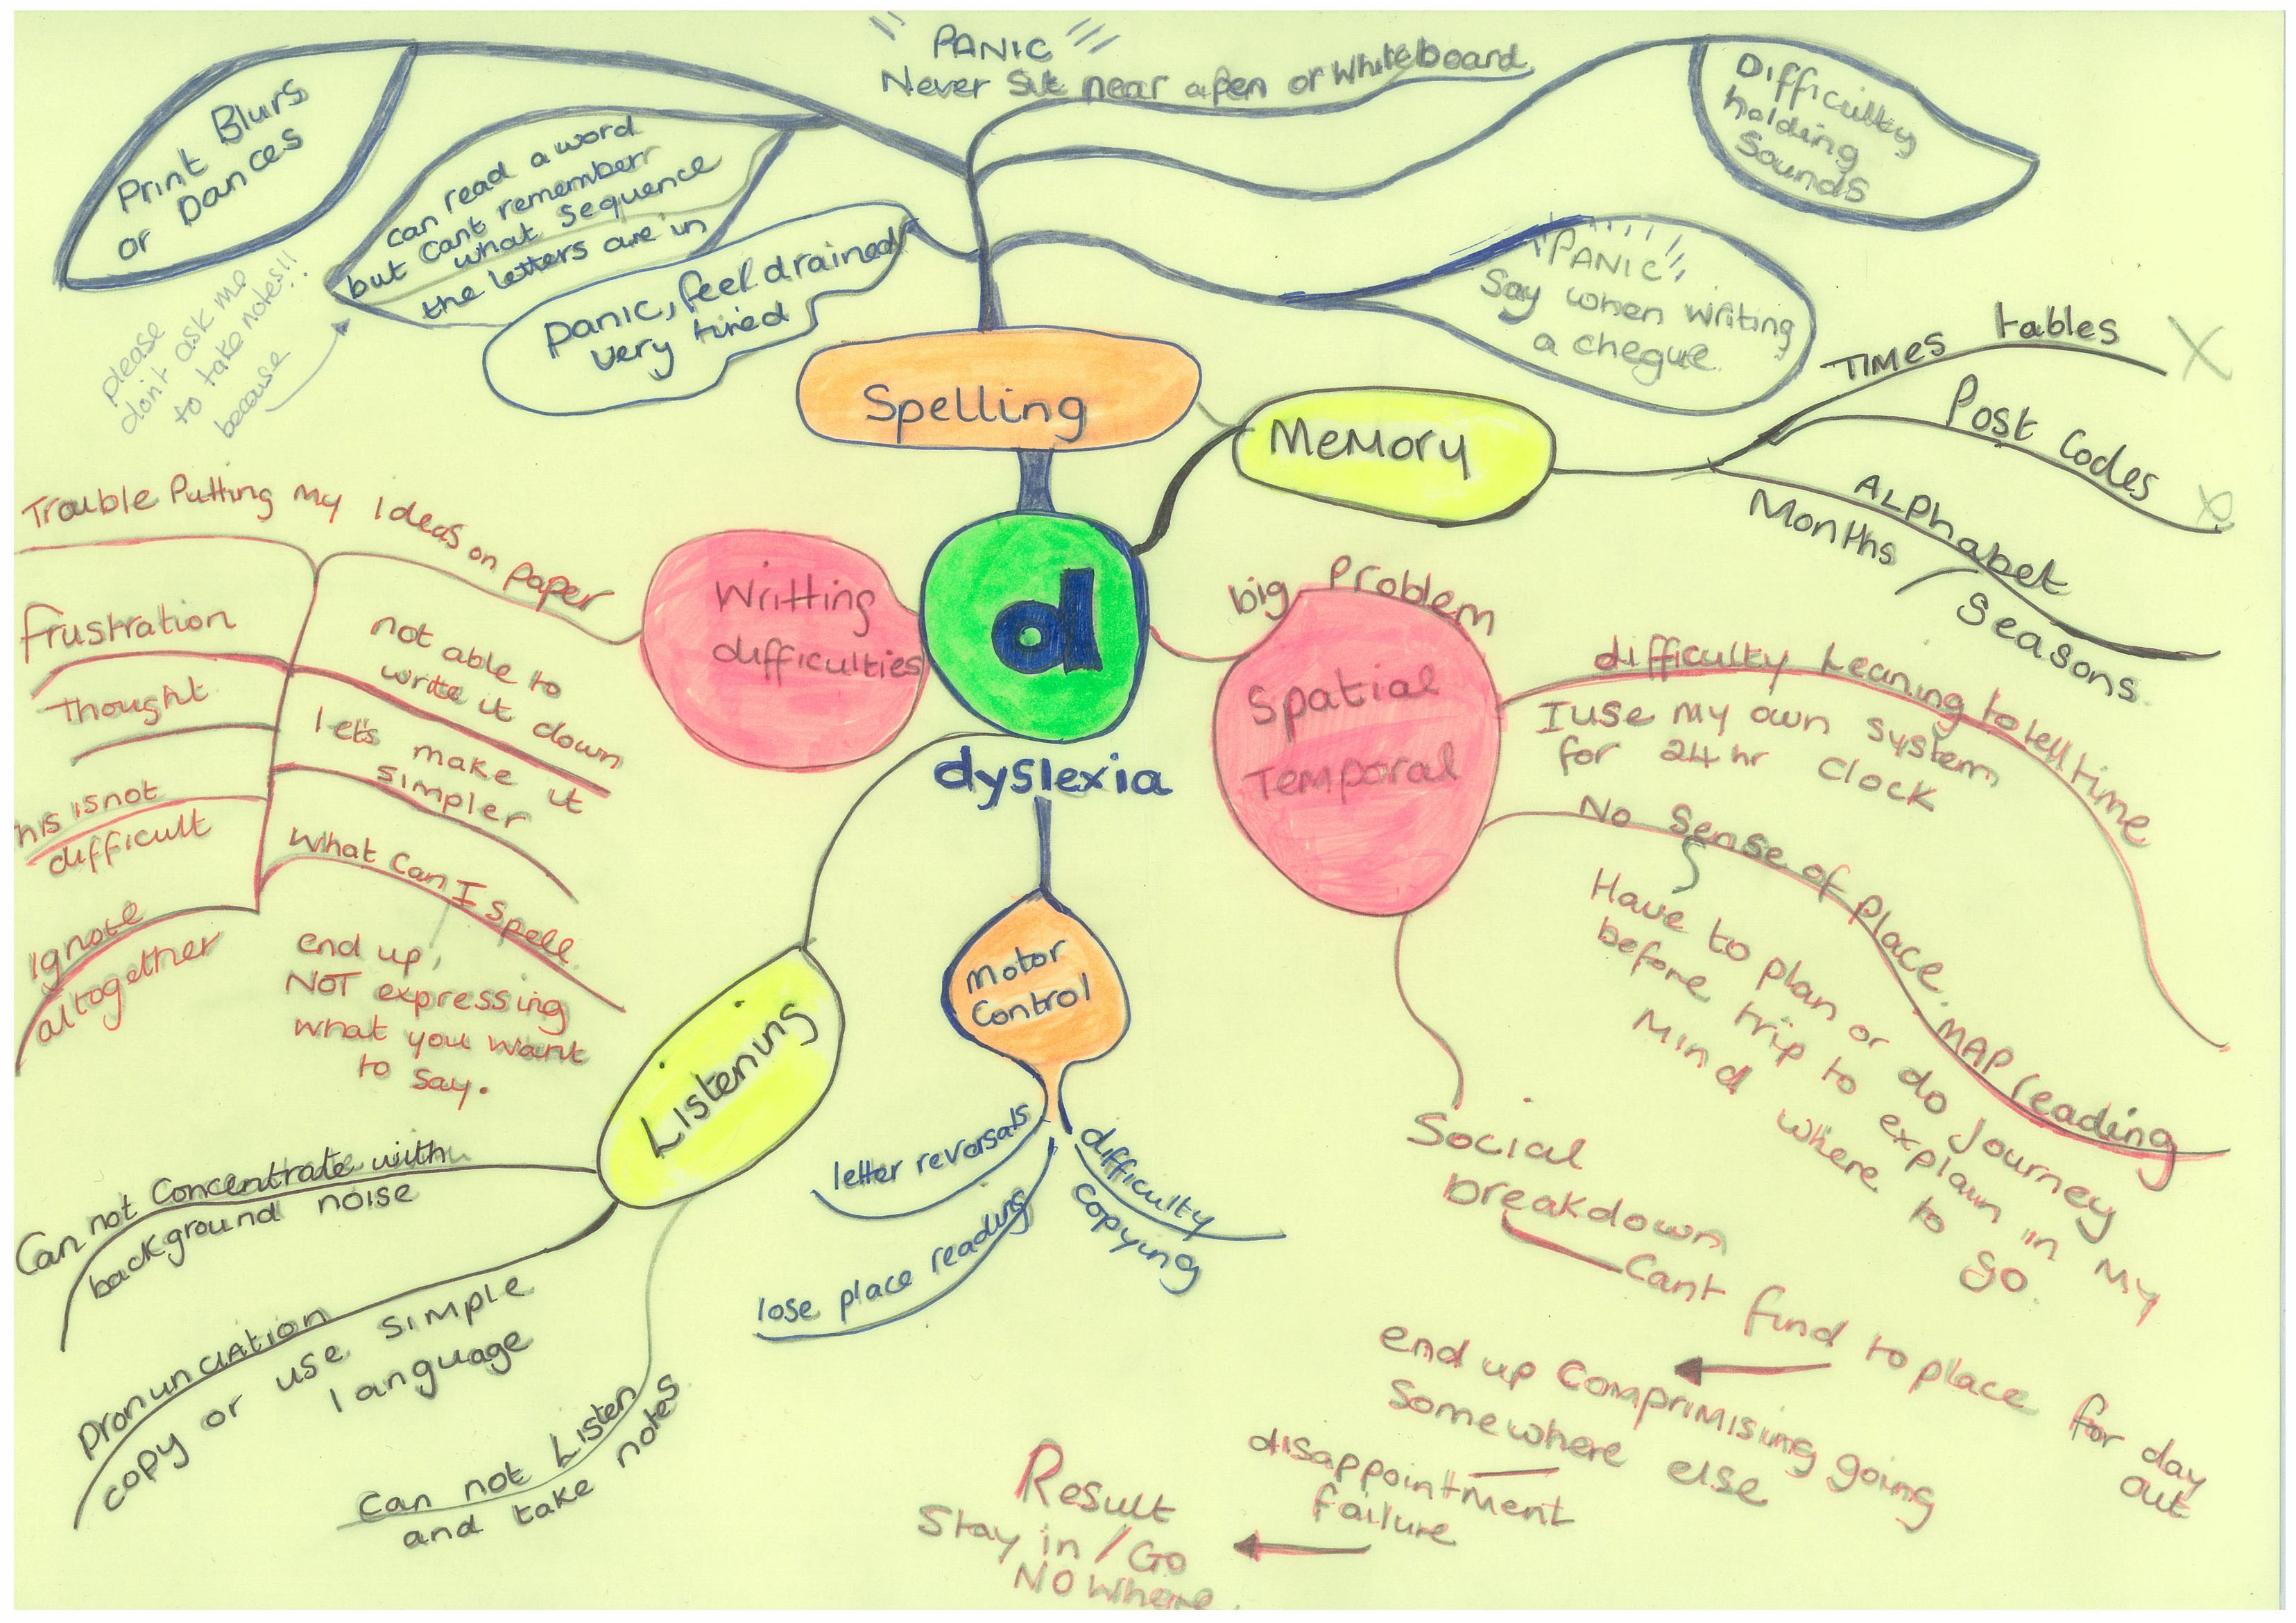 PANIC
Never Sit near a pen or Whiteboard
Difficulty
holding
Sounds
Print Blurs
or Dances
can read a word
but cant rememberr
what sequence
the letters are in
please
don't ask me
to take notes!!
because
panic, feel drained
very tired
PANIC
Say when writing
a cheque.
Spelling
Memory
TIMES tables
Post Codes
ALPhabet
Months
Seasons.
d
dyslexia
Writting
difficulties
Trouble Putting my Ideas on paper
frustration
not able to
write it down
thought
let's make it
simpler
his is not
difficult
What Can I spell.
ignore
altogether
end up,
NOT expressing
what you want
to say.
big Problem
Spatial
Temporal
difficulty Leaning to tell time
I use my own system
for 24 hr clock
No Sense of place. MAP reading
Have to plan or do Journey
before trip to explain in My
Mind where to go.
Social
breakdown
Cant find to place for day
out
end up Comprimising going
somewhere else
disappointment
failure
Result
Stay in / Go
NO Where.
Motor
Control
letter reversals
lose place reading
difficulty
copying
Listening
Can not Concentrate with
background noise
Pronunciation
copy or use simple
language
Can not Listen
and take notes